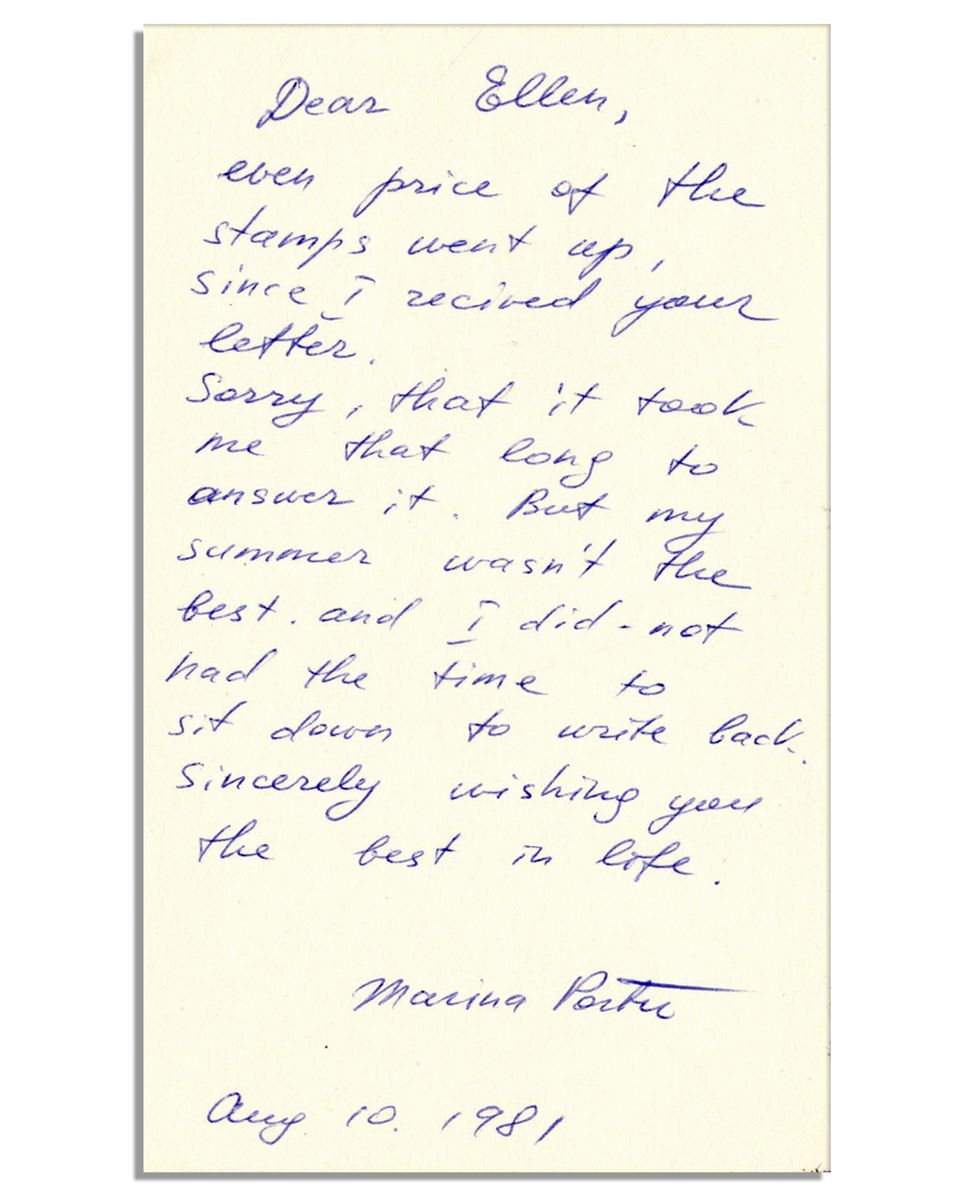 Dear Ellen,
even price of the
stamps went up,
since I recived your
letter.
Sorry, that it took
me that long to
answer it. But my
summer wasn't the
best. and I did-not
had the time to
sit down to write back.
Sincerely wishing you
the best in life.
Marina Porter
Aug 10. 1981